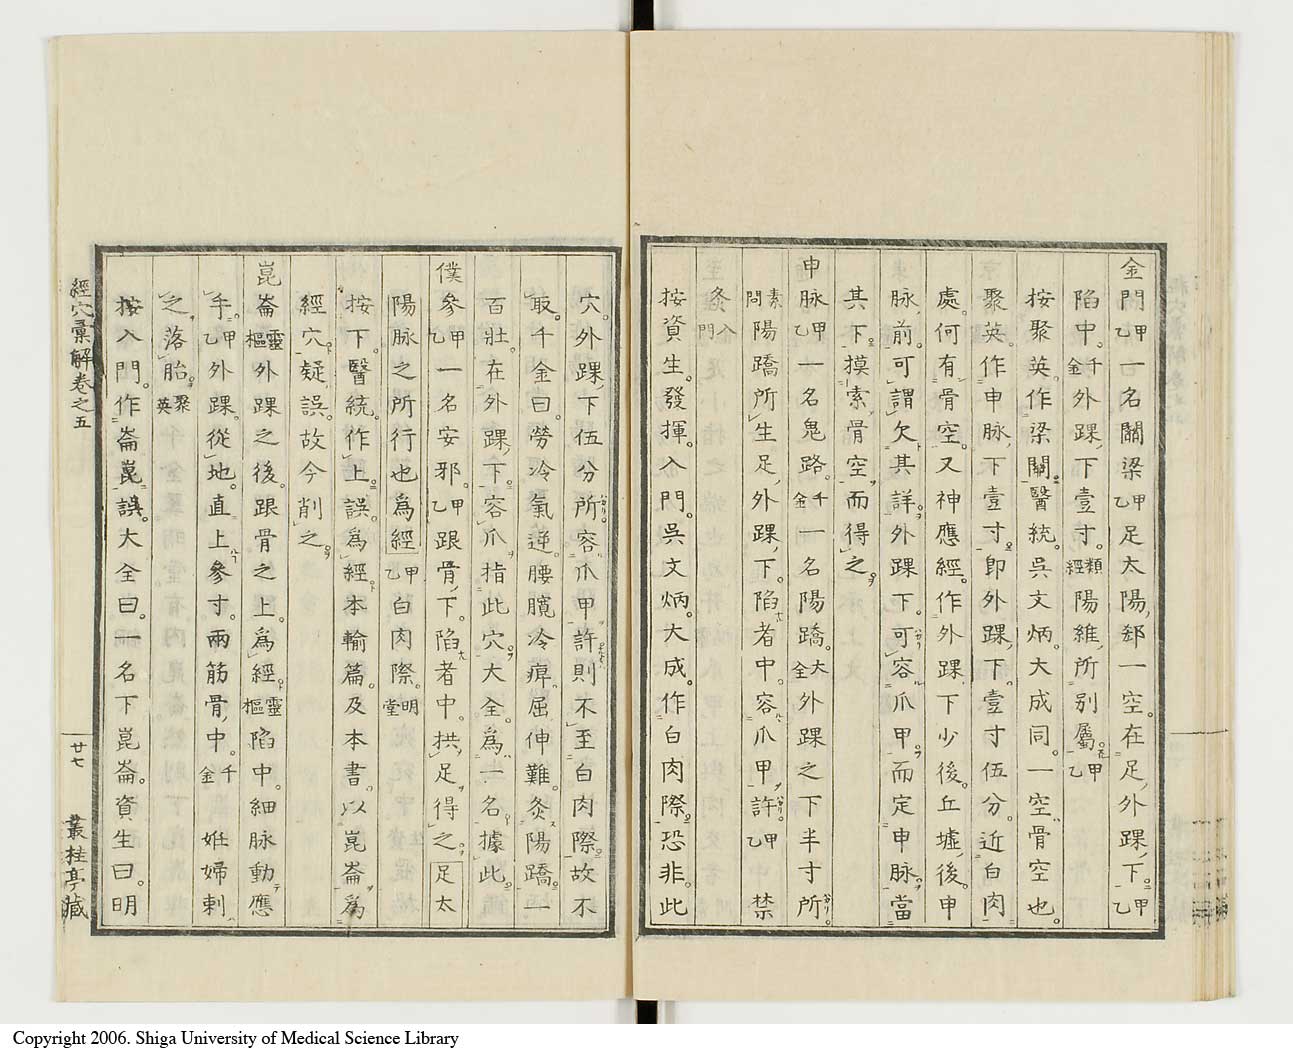 金門甲乙一名關梁甲乙足太陽郄一空在足外踝下甲乙
陷中千金外踝下壹寸類經陽維所別屬甲乙
按聚英作梁關醫統吳文炳大成同一空骨空也
聚英作申脉下壹寸卽外踝下壹寸伍分近白肉
處何有骨空又神應經作外踝下少後丘墟後申
脉前可謂欠其詳外踝下可容爪甲而定申脉當
其下摸索骨空而得之
申脉甲乙一名鬼路千金一名陽蹻大全外踝之下半寸所
素問陽蹻所生足外踝下陷者中容爪甲許甲乙禁
灸入門
按資生發揮入門吳文炳大成作白肉際恐非此
穴外踝下伍分所容爪甲許則不至白肉際故不
取千金曰勞冷氣逆腰髖冷痺屈伸難灸陽蹻一
百壯在外踝下容爪指此穴大全爲一名據此
僕參甲乙一名安邪甲乙跟骨下陷者中拱足得之足太
陽脉之所行也爲經甲乙白肉際明堂
按下醫統作上誤爲經本輸篇及本書以崑崙爲
經穴疑誤故今削之
崑崙靈樞外踝之後跟骨之上爲經靈樞陷中細脉動應
手甲乙外踝從地直上參寸兩筋骨中千金姙婦刺
之落胎聚英
按入門作崙崑誤大全曰一名下崑崙資生曰明
經穴彙解卷之五
廿七
叢桂亭藏
Copyright 2006. Shiga University of Medical Science Library